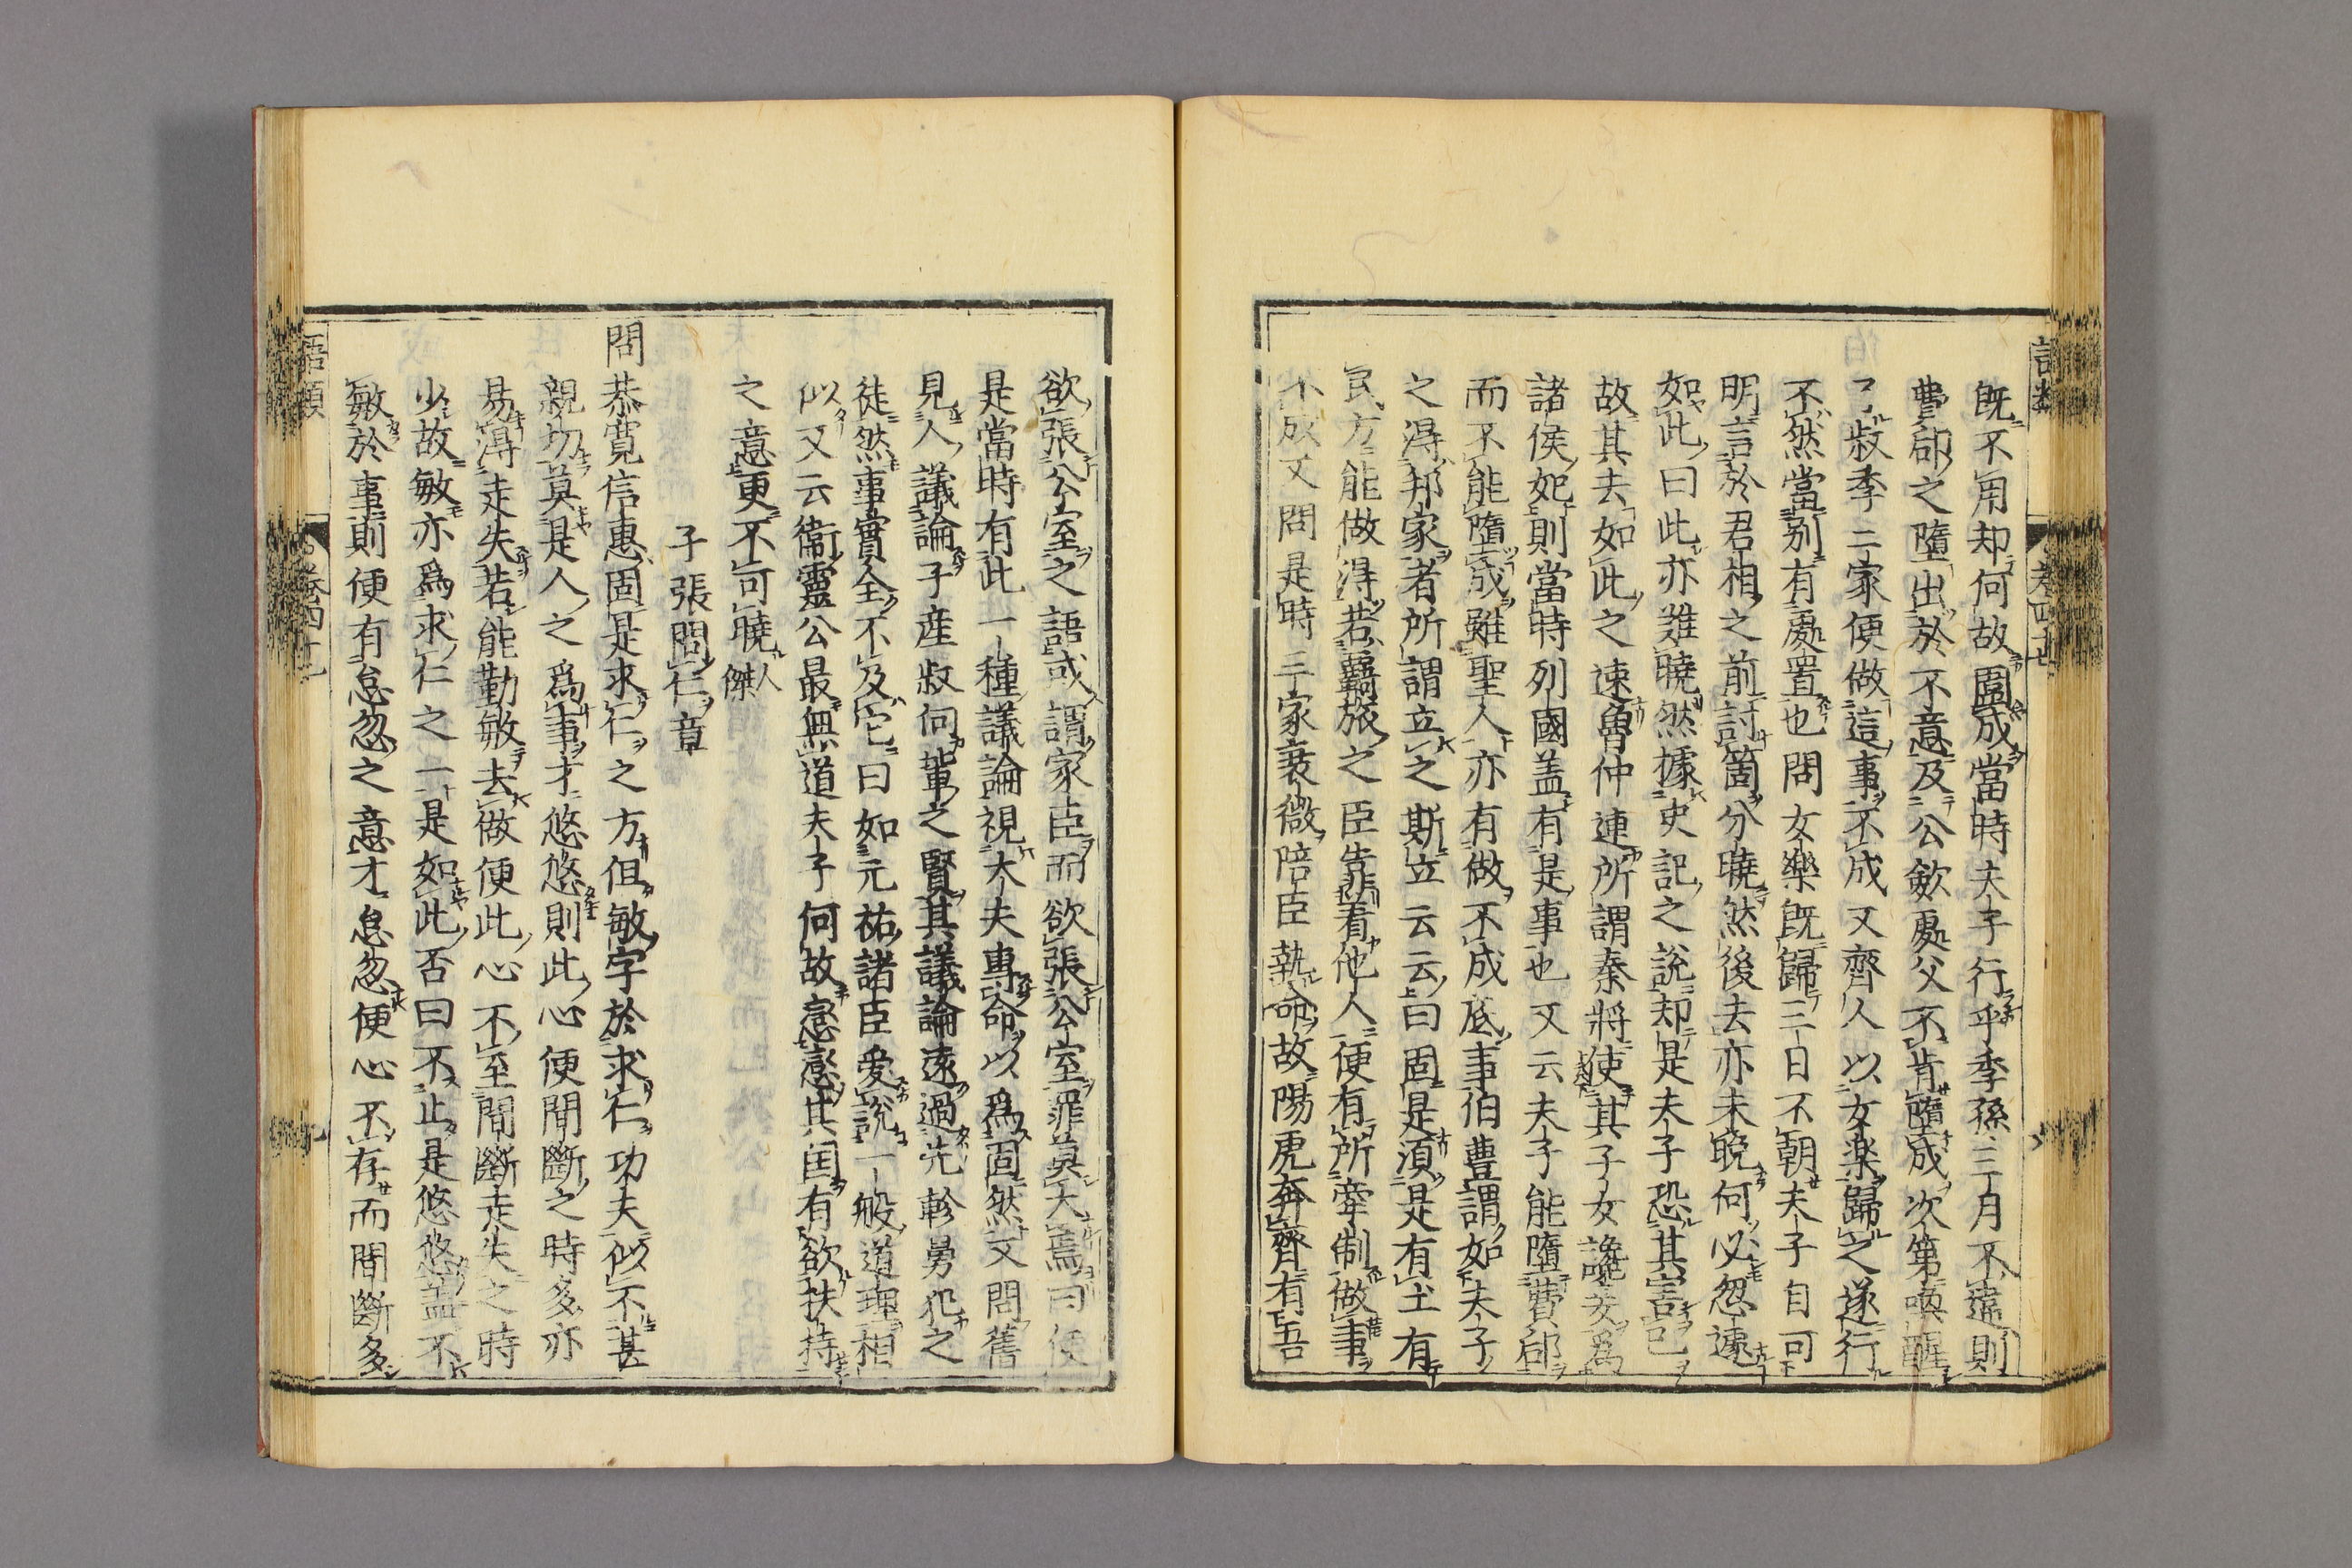 既不用却何故圍成當時夫子行乎季孫三月不違則
費郈之墮出於不意及公斂處父不肯墮成次第喚醒
了叔季二家便做這事不成又齊人以女樂歸之遂行
不然當別有處置也問女樂既歸三日不朝夫子自可
明言於君相之前討箇分曉然後去亦未晚何必忽遽
如此曰此亦難曉然據史記之說却是夫子恐其害己
故其去如此之速魯仲連所謂秦將使其子女讒妾爲
諸侯妃則當時列國盖有是事也又云夫子能墮費郈
而不能墮成雖聖人亦有做不成底事伯豊謂如夫子
之得邦家者所謂立之斯立云云曰固是須是有土有
民方能做得若羇旅之臣靠着他人便有所牽制做事
不成又問是時三家衰微陪臣執命故陽虎奔齊有吾
欲張公室之語或謂家臣而欲張公室罪莫大焉曰便
是當時有此一種議論視大夫專命以爲固然又問舊
見人議論子産叔向輩之賢其議論遠過先軫舅犯之
徒然事實全不及它曰如元祐諸臣愛說一般道理相
似又云衞靈公最無道夫子何故戀戀其國有欲扶持
之意更不可曉人傑
子張問仁章
問恭寬信惠固是求仁之方但敏字於求仁功夫似不甚
親切莫是人之爲事才悠悠則此心便間斷之時多亦
易得走失若能勤敏去做便此心不至間斷走失之時
少故敏亦爲求仁之一是如此否曰不止是悠悠盖不
敏於事則便有怠忽之意才怠忽便心不存而間斷多
語類
卷四十七